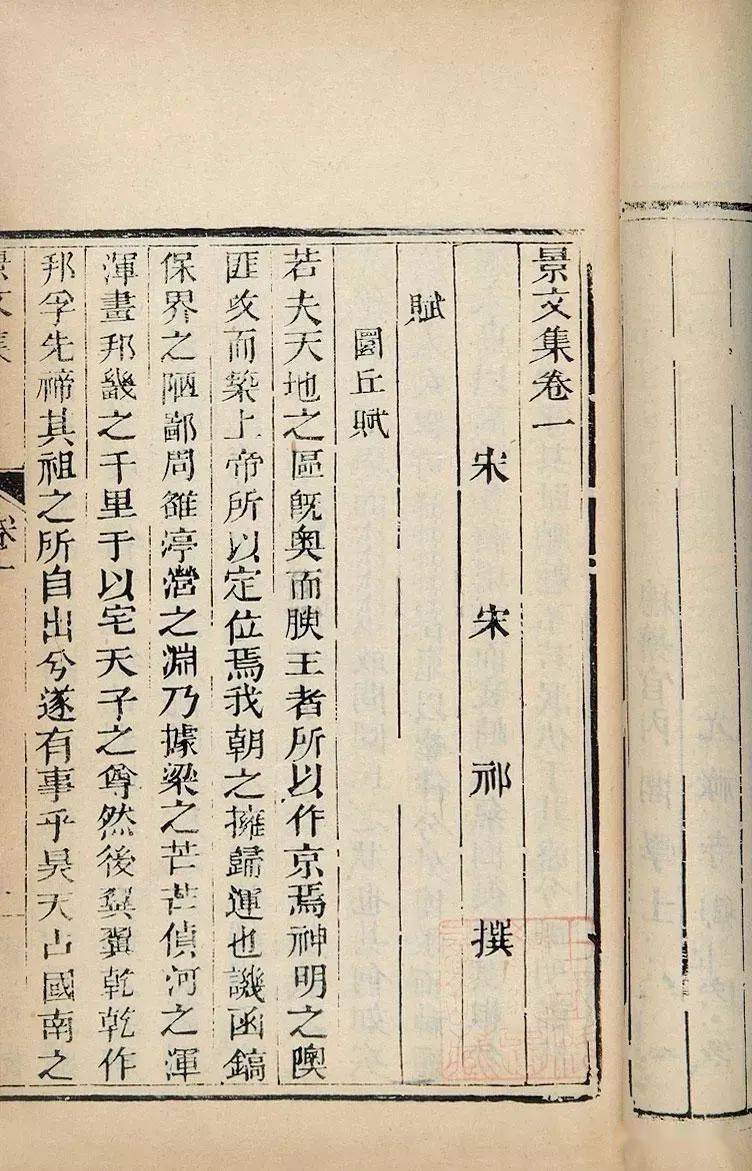 景文集卷一
宋 宋祁 撰
賦
圜丘賦
若夫天地之區既奧而腴王者所以作京焉神明之隩
匪攻而築上帝所以定位焉我朝之擁歸運也譏函鎬
保界之陋鄙問雒渟瀯之淵乃據梁之芒芒偵河之渾
渾畫邦畿之千里于以宅天子之尊然後翼翼乾乾作
邦孚先禘其祖之所自出兮遂有事乎昊天占國南之
景文集
卷一